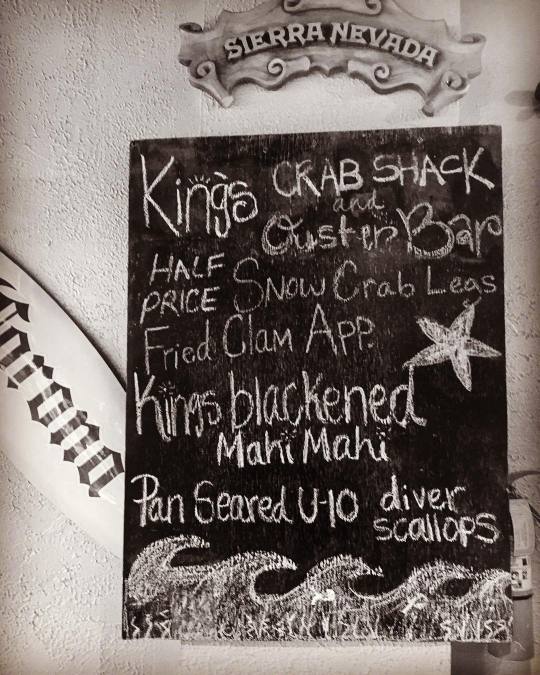 SIERRA NEVADA
King's CRAB SHACK
and
Oyster Bar
HALF PRICE Snow Crab Legs
Fried Clam App.
Kings blackened
Mahi Mahi
Pan Seared U-10 diver
scallops